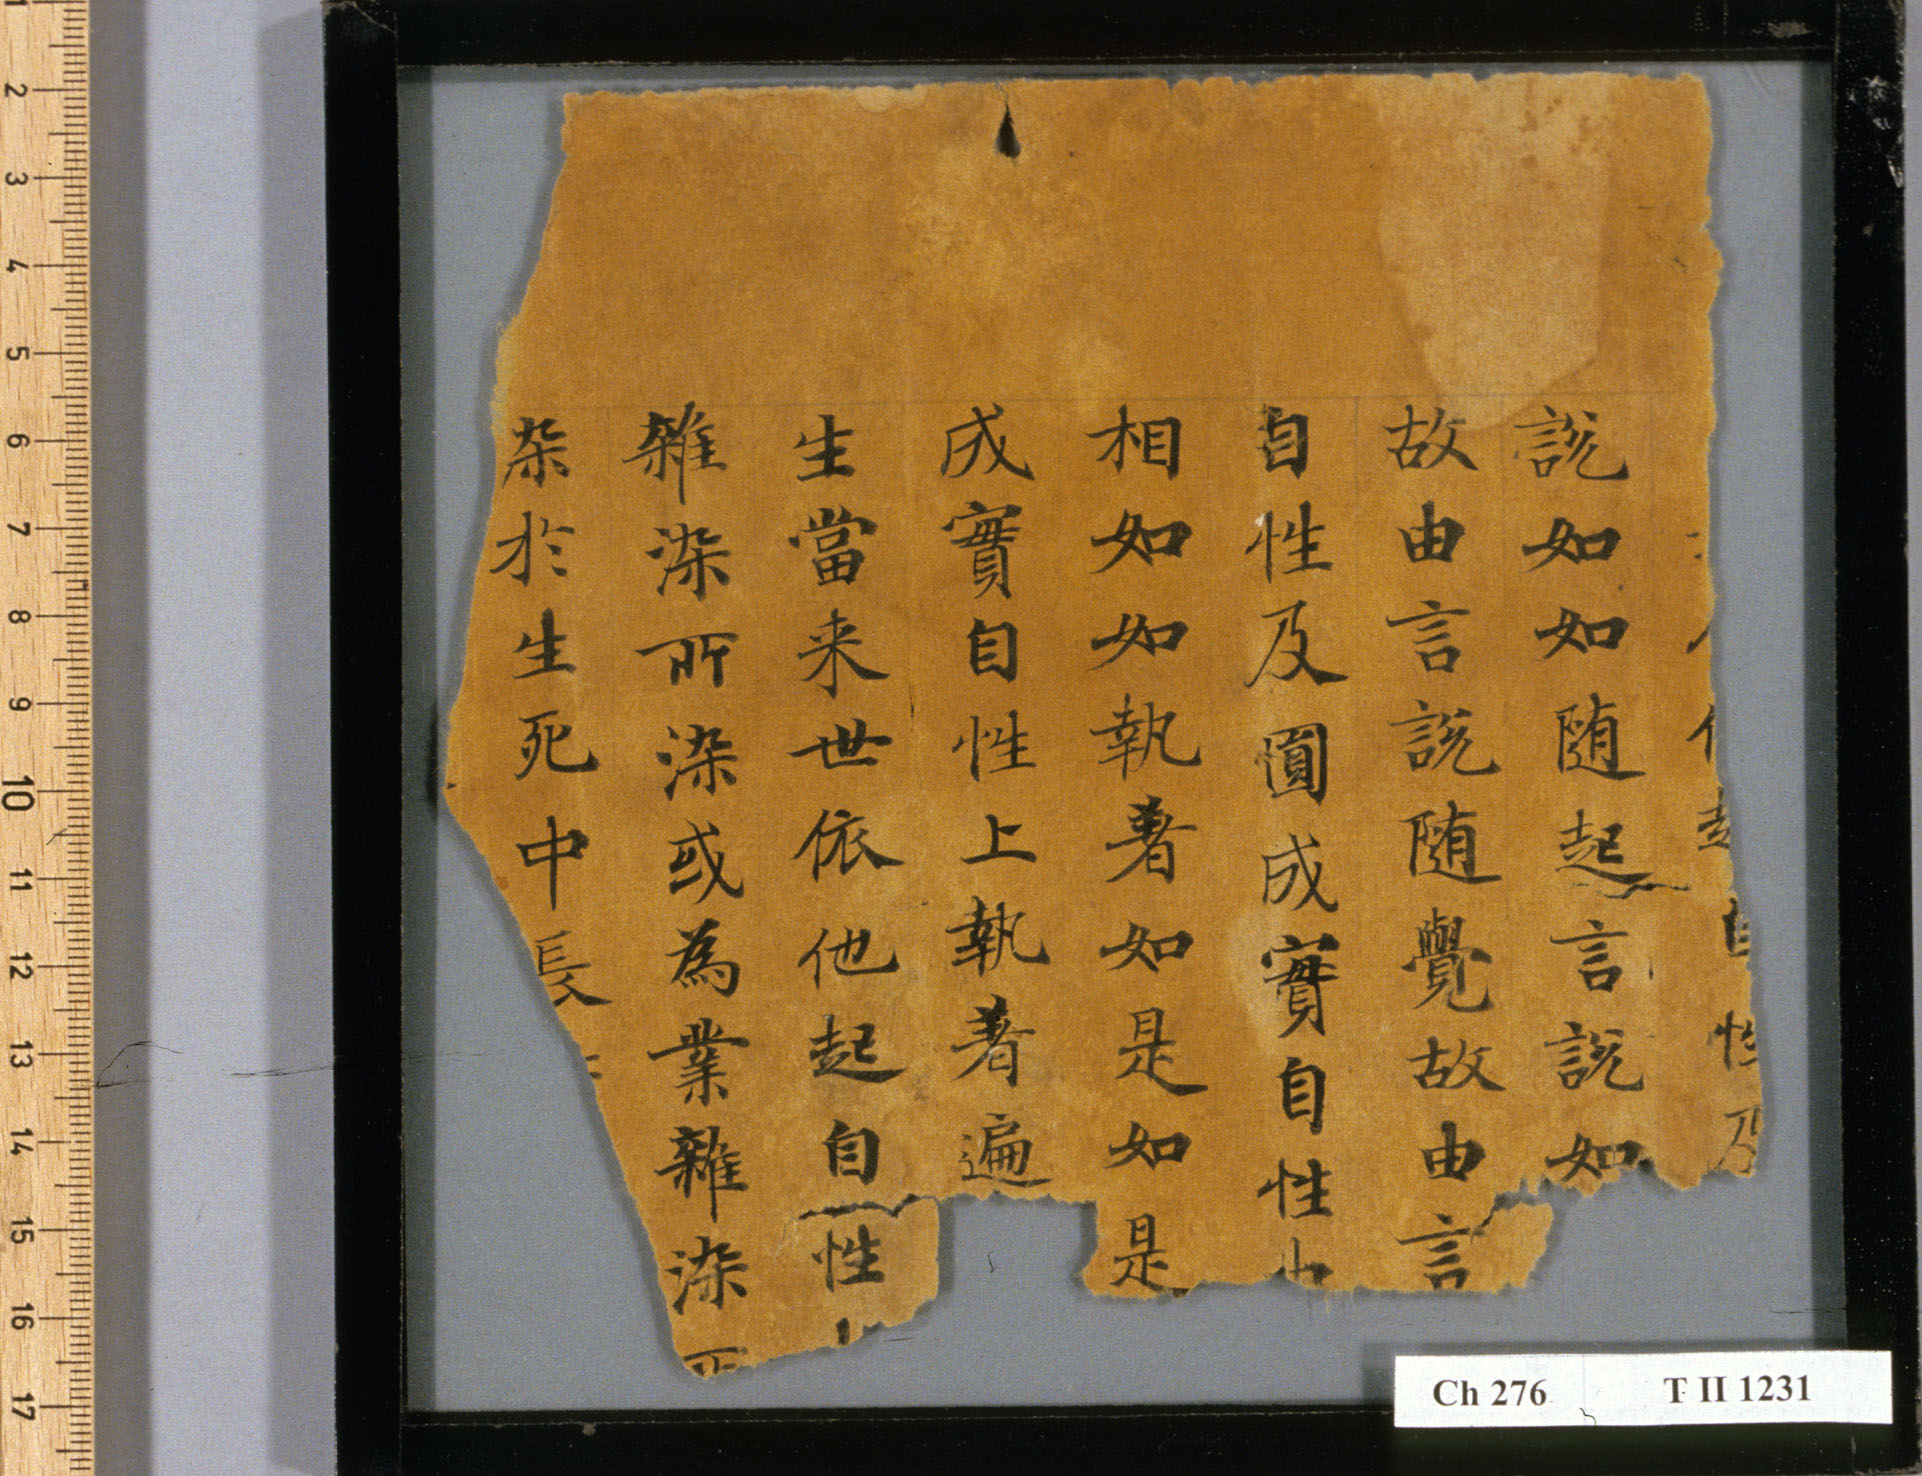 起自性及
說如如随起言說如
故由言說随覺故由言
自性及圓成實自性
相如如執著如是如是
成實自性上執著遍
生當来世依他起自性
雜染所染或為業雜染
染於生死中長
Ch 276 T II 1231
2
3
4
5
6
7
8
9
10
11
12
13
14
15
16
17